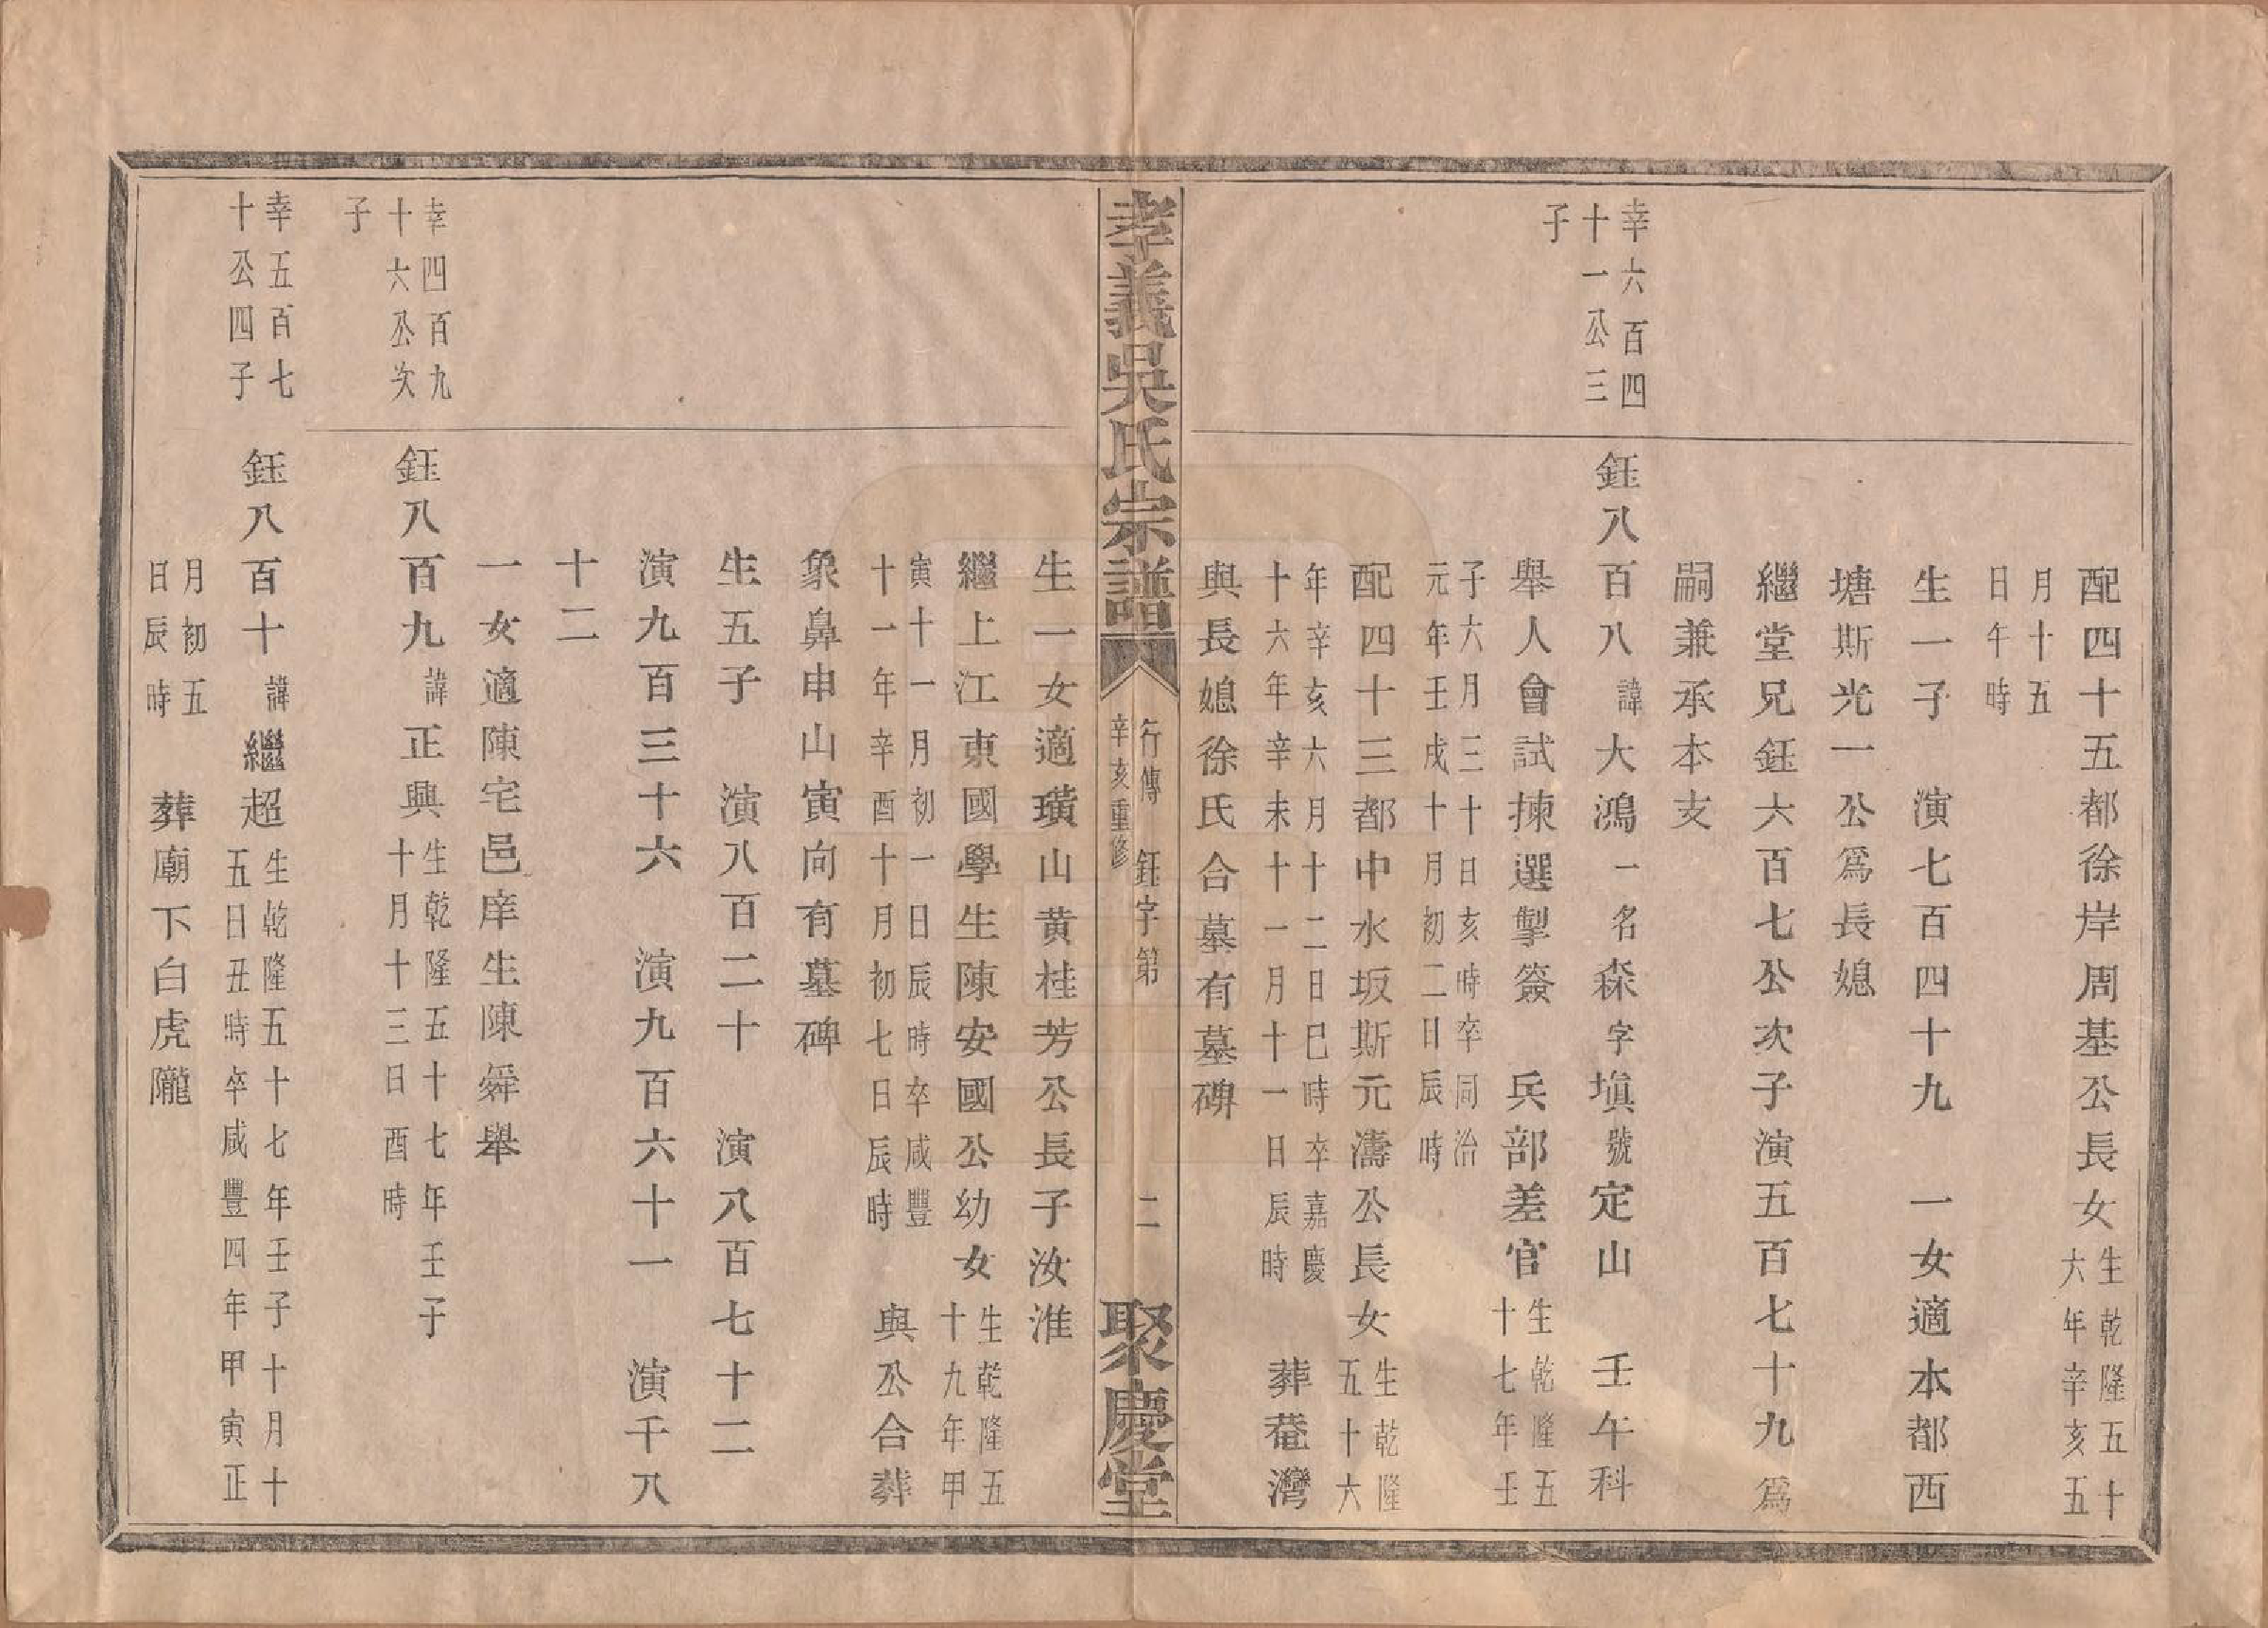 配四十五都徐岸周基公長女生乾隆五十
大年辛亥五
月十五
日午時
生一子　演七百四十九　一女適本都西
塘斯光一公爲長媳
繼堂兄鈺六百七公次子演五百七十九爲
嗣兼承本支
幸六百四
十一公三
子
鈺八百八諱大鴻一名森字塡號定山　壬午科
舉人會試揀選掣簽　兵部差官生乾隆五
十七年壬
子六月三十日亥時卒同治
元年壬戌十月初二日辰時
配四十三都中水坂斯元濤公長女生乾隆
五十六
年辛亥六月十二日巳時卒嘉慶
十六年辛未十一月十一日辰時
葬菴灣
與長媳徐氏合墓有墓碑
孝義吳氏宗譜
行傳　鈺字第　二
辛亥重修
聚慶堂
生一女適璜山黄桂芳公長子汝淮
繼上江東國學生陳安國公幼女生乾隆五
十九年甲
寅十一月初一日辰時卒咸豐
十一年辛酉十月初七日辰時
與公合葬
象鼻申山寅向有墓碑
生五子　演八百二十　演八百七十二
演九百三十六　演九百六十一　演千八
十二
一女適陳宅邑庠生陳舜舉
幸四百九
十六公次
子
鈺八百九諱正興生乾隆五十七年壬子
十月十三日酉時
幸五百七
十公四子
鈺八百十諱繼超生乾隆五十七年壬子十月十
五日丑時卒咸豐四年甲寅正
月初五
日辰時
葬廟下白虎隴